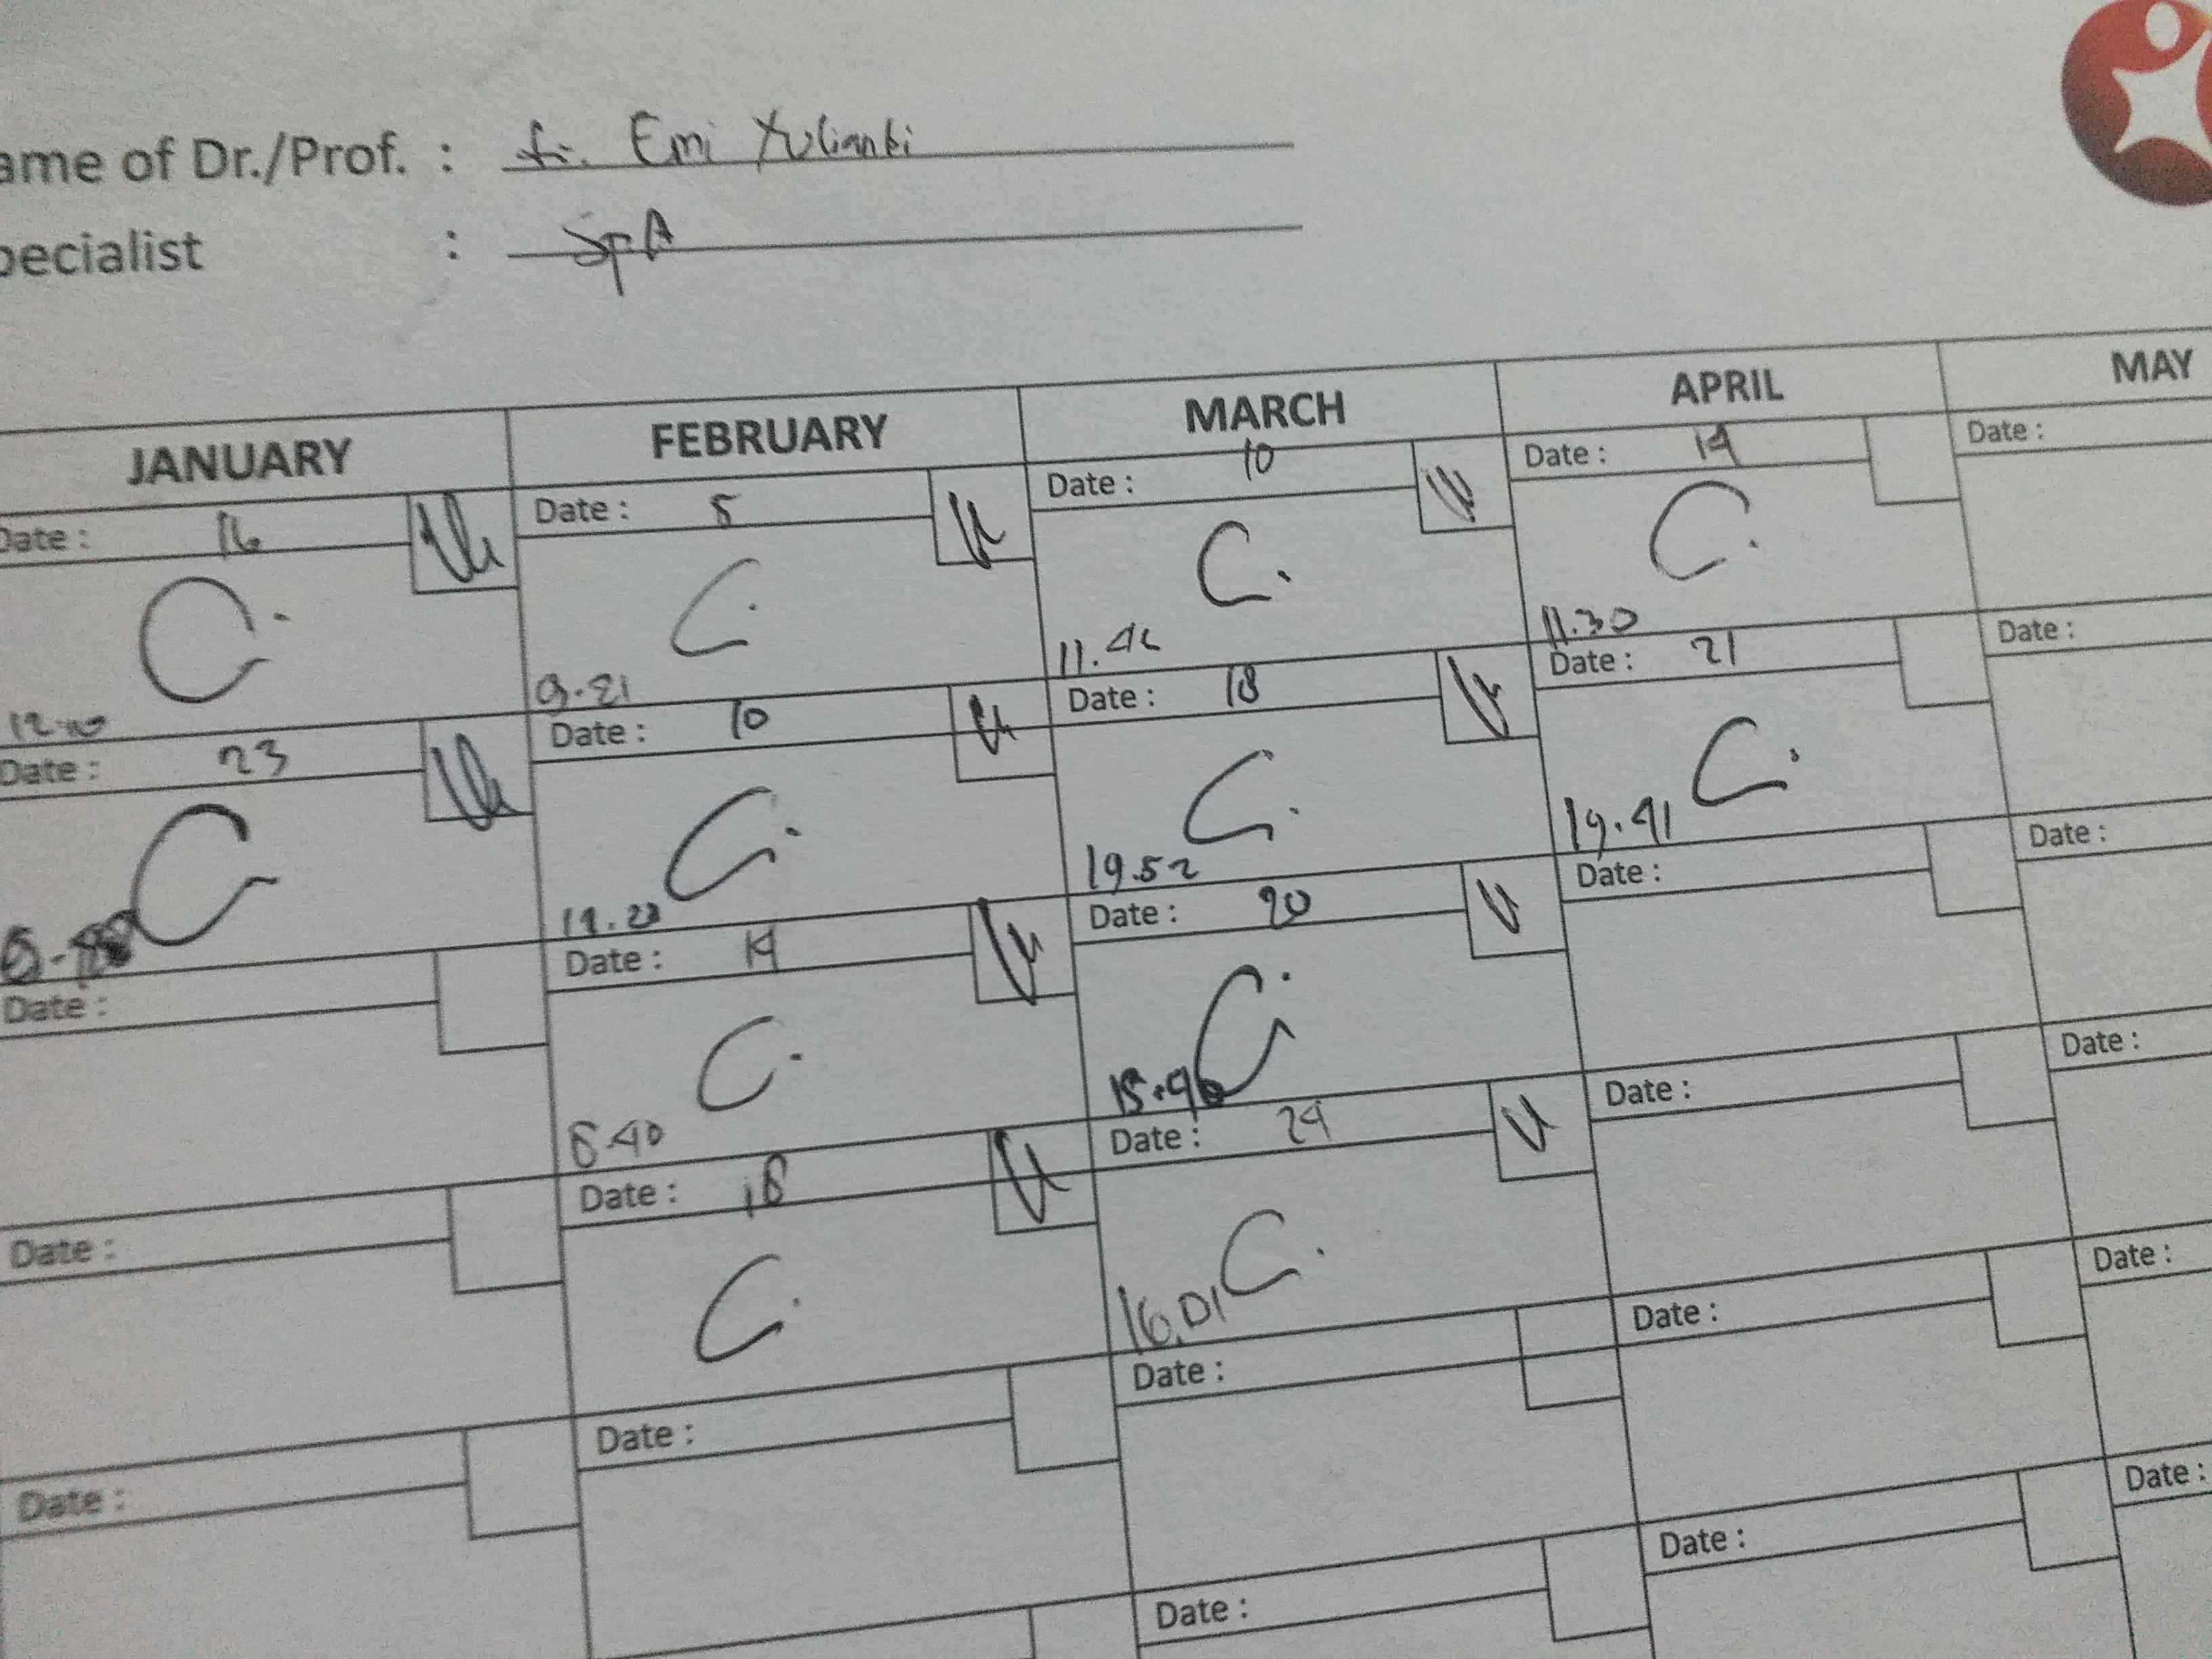 ame of Dr./Prof. : dr. Emi Yulianti
pecialist : SpA
JANUARY FEBRUARY MARCH APRIL MAY
Date : 16 Date : 5 Date : 10 Date : 14 Date :
C. C. C. C.
12.10 9.21 11.46 11.30
Date : 23 Date : 10 Date : 18 Date : 21 Date :
C C. C. C.
19.52 19.41
Date : Date : 14 Date : 20 Date : Date :
C. C.
8.40
Date : Date : 18 Date : 24 Date : Date :
C. C.
16.01
Date : Date : Date : Date : Date :
Date : Date : Date :